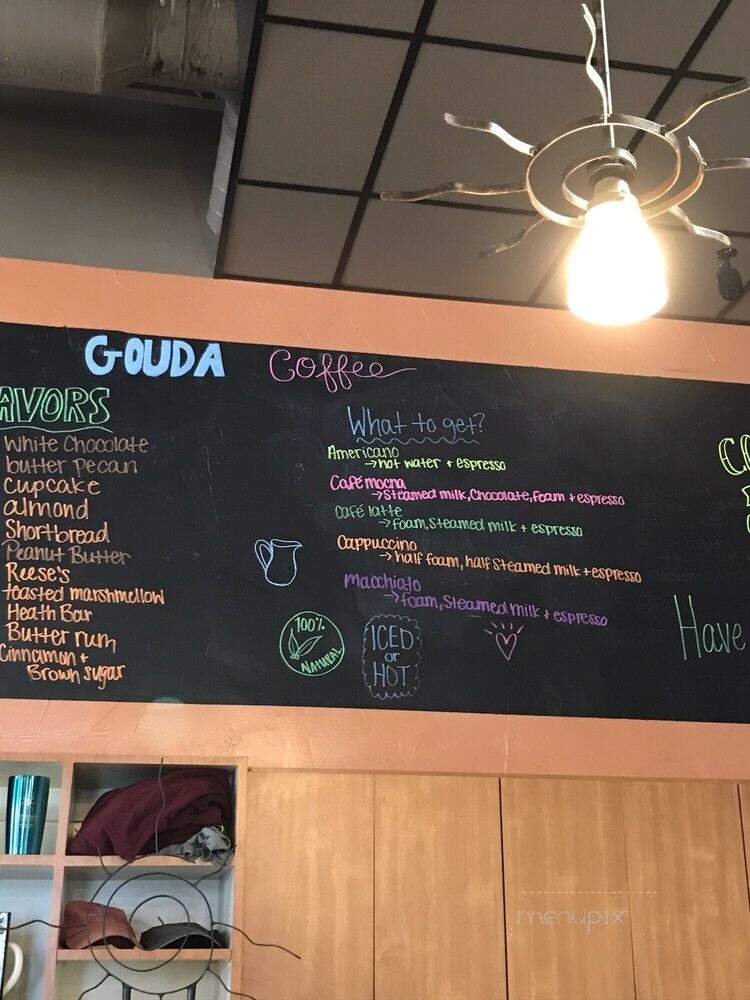 GOUDA Coffee
AVORS
White Chocolate
butter pecan
Cupcake
almond
Shortbread
Peanut Butter
Reese's
toasted marshmellow
Heath Bar
Butter rum
Cinnamon +
Brown sugar
What to get?
Americano
→hot water + espresso
Café mocha
→Steamed milk, Chocolate, foam + espresso
Café latte
→foam, Steamed milk + espresso
Cappuccino
→half foam, half steamed milk + espresso
Macchiato
→foam, Steamed milk + espresso
100%
NATURAL
ICED
or
HOT
Have
menupix